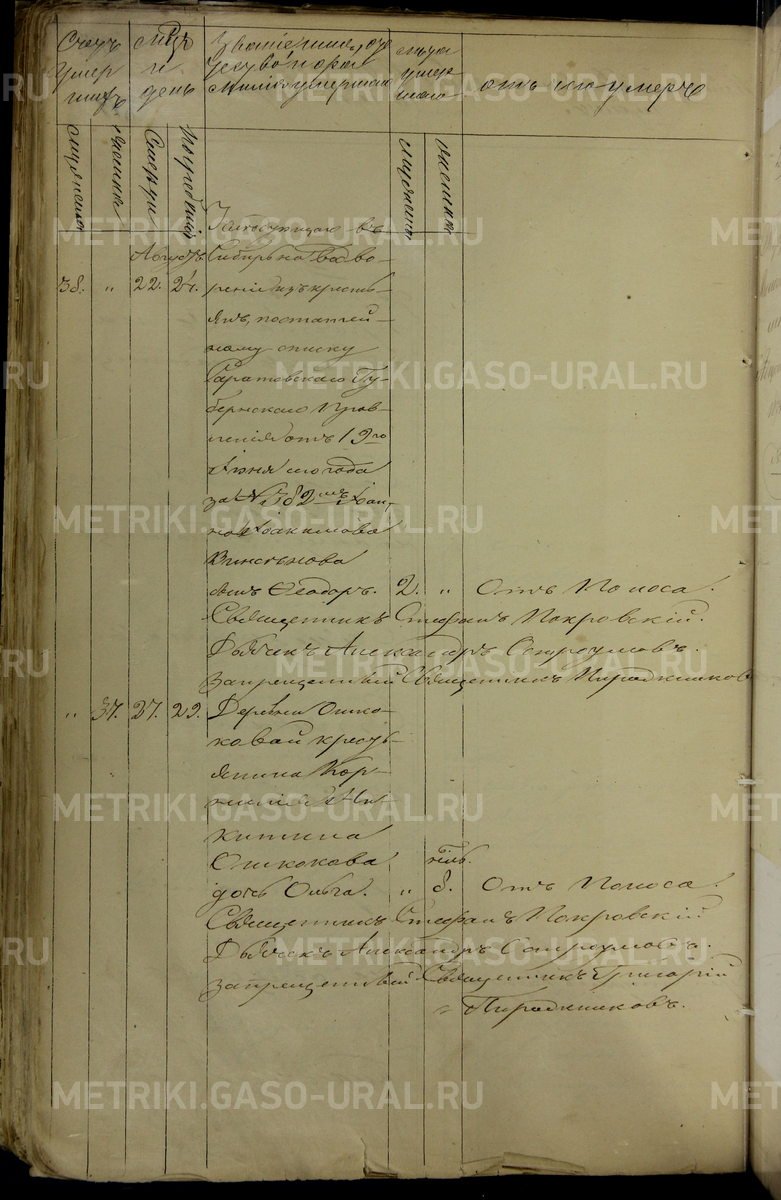 Счетъ умершихъ
мѣсяцъ и день
Званіе, имя, отчество и фамилія умершаго
лѣта умершаго
отъ чего умеръ
мужеска
женска
смерти
погребенія
мужеска
женска
Августъ
38. „ 22. 24.
Слѣдующаго въ
Сибирь на водво-
реніе изъ кресть-
янъ, по статей-
ному списку
Саратовскаго Гу-
бернскаго Прав-
ленія отъ 19го
Іюня сего года
за №
сынъ Ѳеодоръ. 2. „ Отъ поноса.
Священникъ Стефанъ Покровскій.
Дьячекъ Александръ Остроумовъ.
Запрещенный Священникъ
„ 37. 27. 29.
Деревни
крестья-
янина Кор-
нилія Ни-
китина
дочь Ольга. „ 8. Отъ поноса.
Священникъ Стефанъ Покровскій
Дьячекъ Александръ Остроумовъ.
запрещенный Священникъ Григорій
METRIKI.GASO-URAL.RU